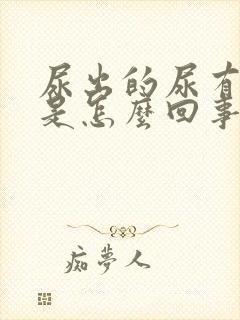 尿出的尿有
是怎麼回事
痴夢人